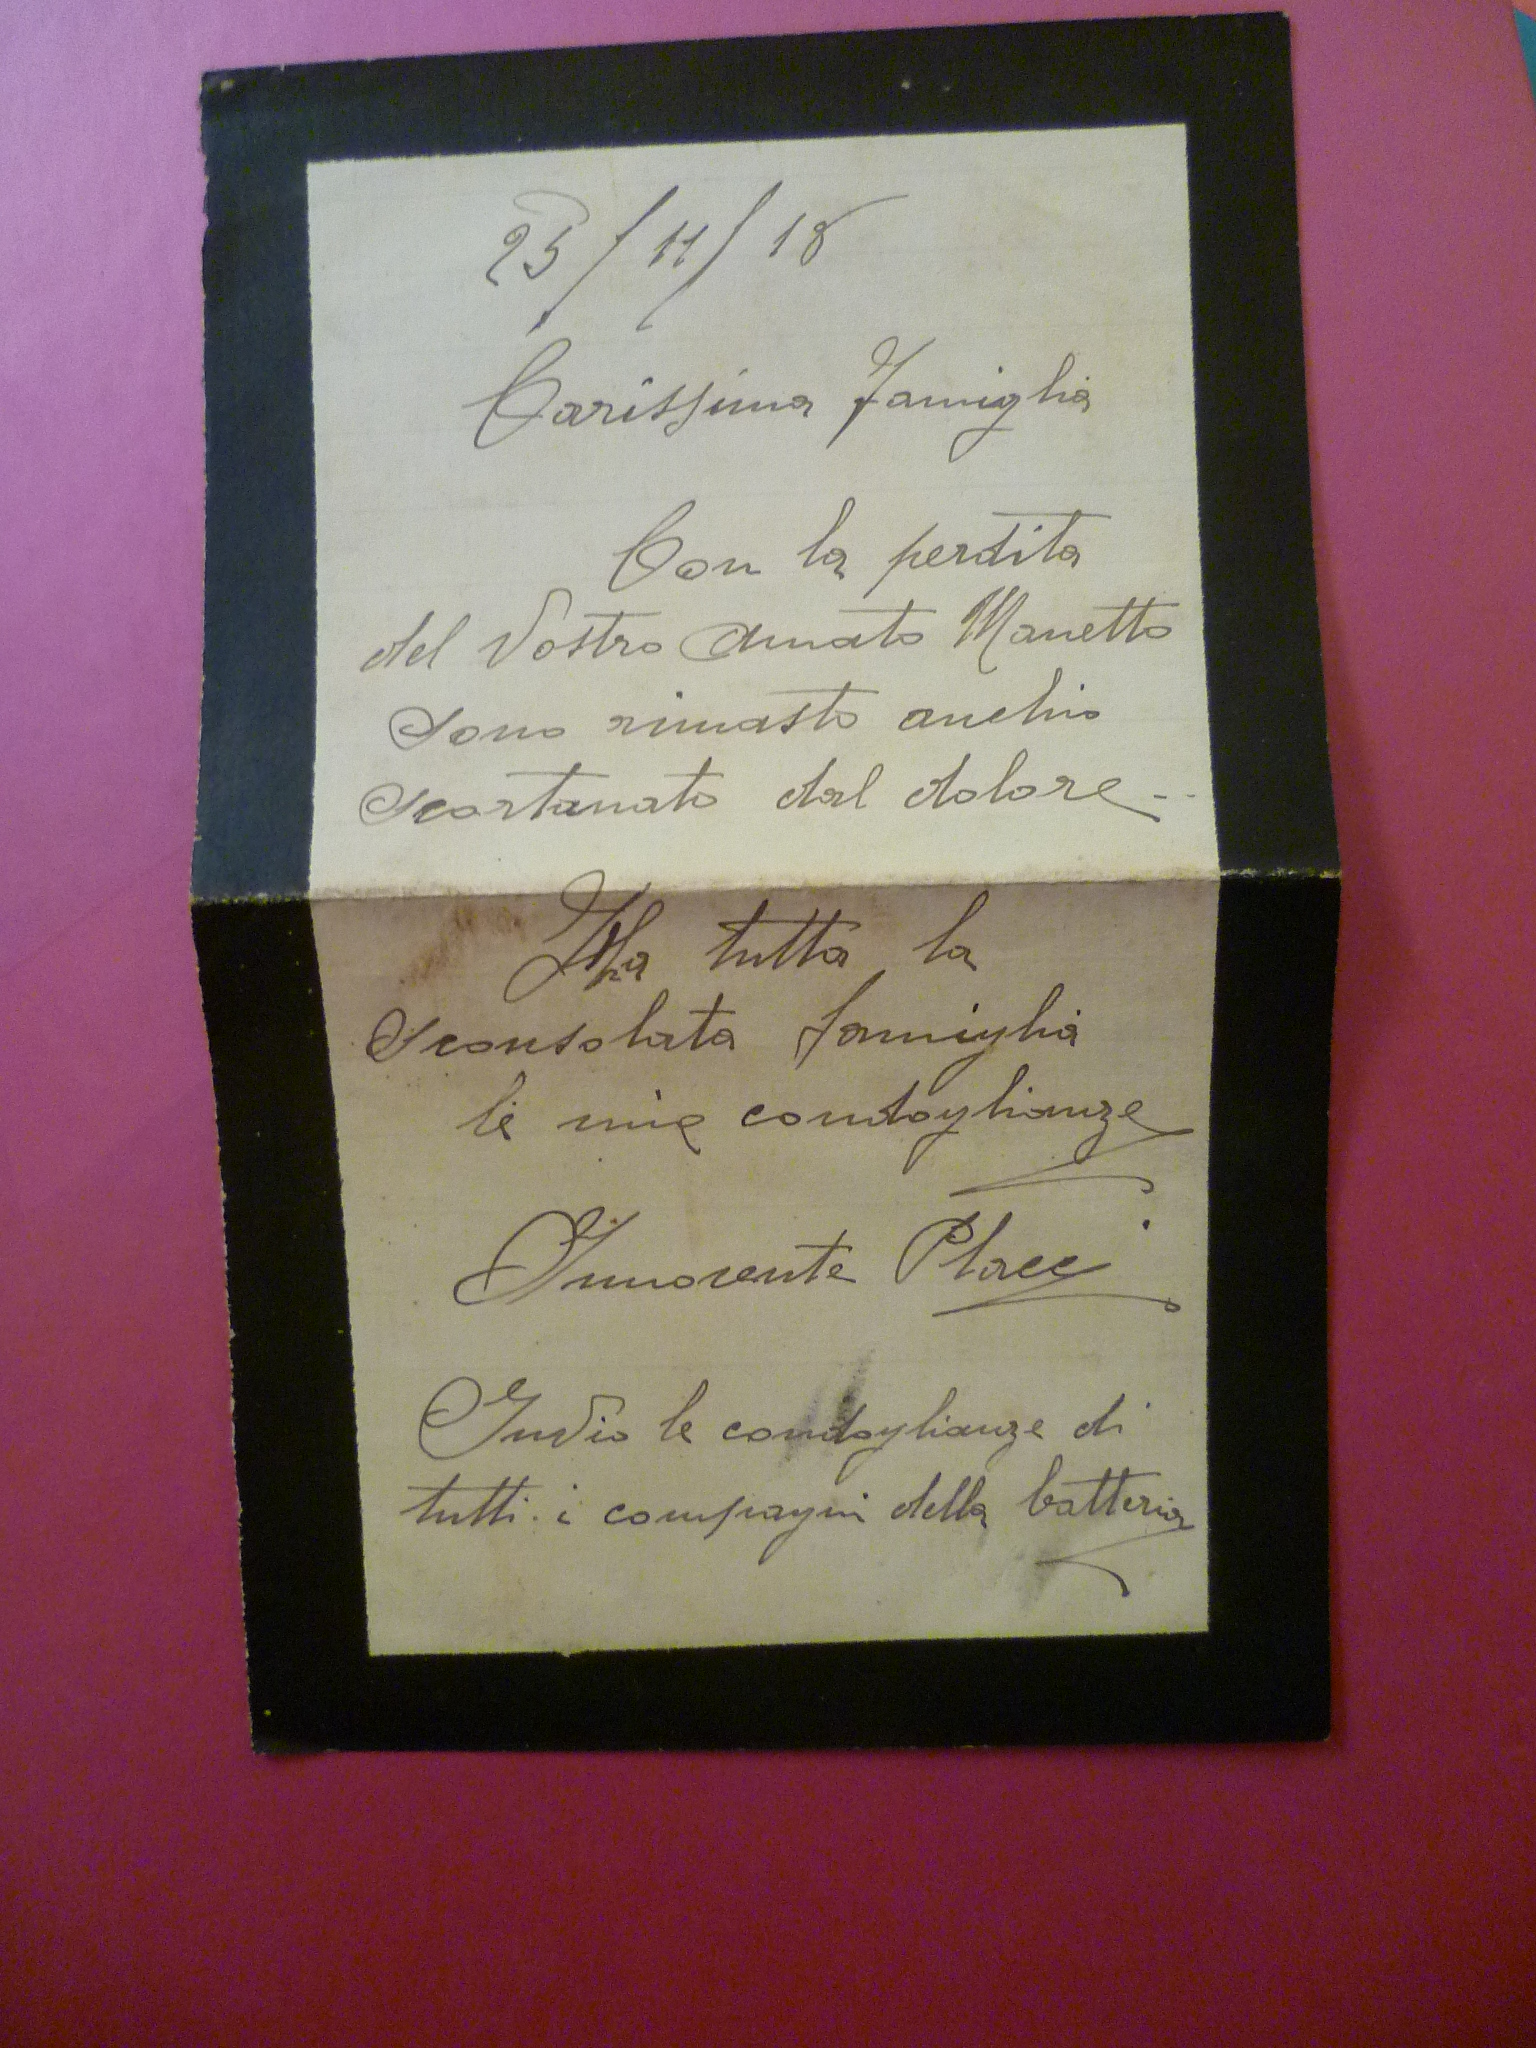 25/11/18
Carissima Famiglia
Con la perdita
del Vostro Amato Manetto
sono rimasto anchio
scortanato dal dolore..
A tutta la
sconsolata famiglia
le mie condoglianze
Innocente Placci
Invio le condoglianze di
tutti i compagni della batteria